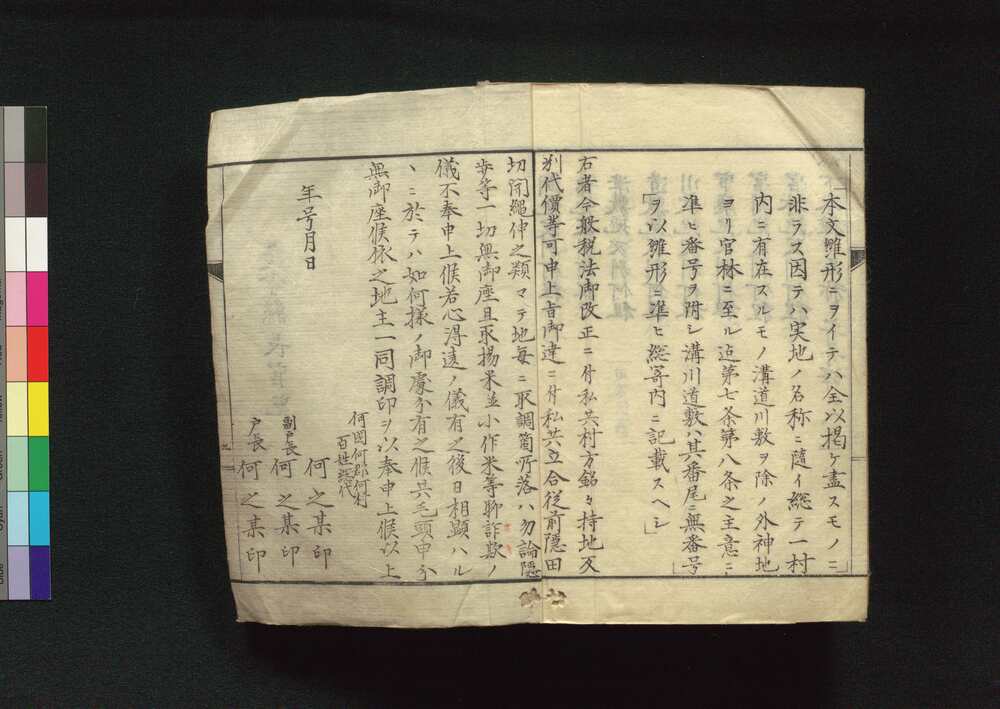 「本文雛形ニヲイテハ全以掲ケ盡スモノニ
非ラス因テハ実地ノ名称ニ隨イ総テ一村
内ニ有在スルモノ溝道川敷ヲ除ノ外神地
ヨリ官林ニ至ル迠第七条第八条之主意ニ
準ヒ番号ヲ附シ溝川道敷ハ其番尾ニ無番号
「ヲ以雛形ニ準ヒ総寄内ニ記載スヘシ」
右者今般税法御改正ニ付私共村方銘々持地反
別代價等可申上旨御達ニ付私共立合従前隠田
切開繩伸之類マテ地毎ニ取調箇所落ハ勿論隠
歩等一切無御座且取揚米並小作米等聊詐欺ノ
儀不奉申上候若心得違ノ儀有之後日相顕ハル
ヽニ於テハ如何様ノ御處分有之候共毛頭申分
無御座候依之地主一同調印ヲ以奉申上候以上
年号月日
何国何郡何村
百姓総代
何之某印
副戸長
何之某印
戸長
何之某印